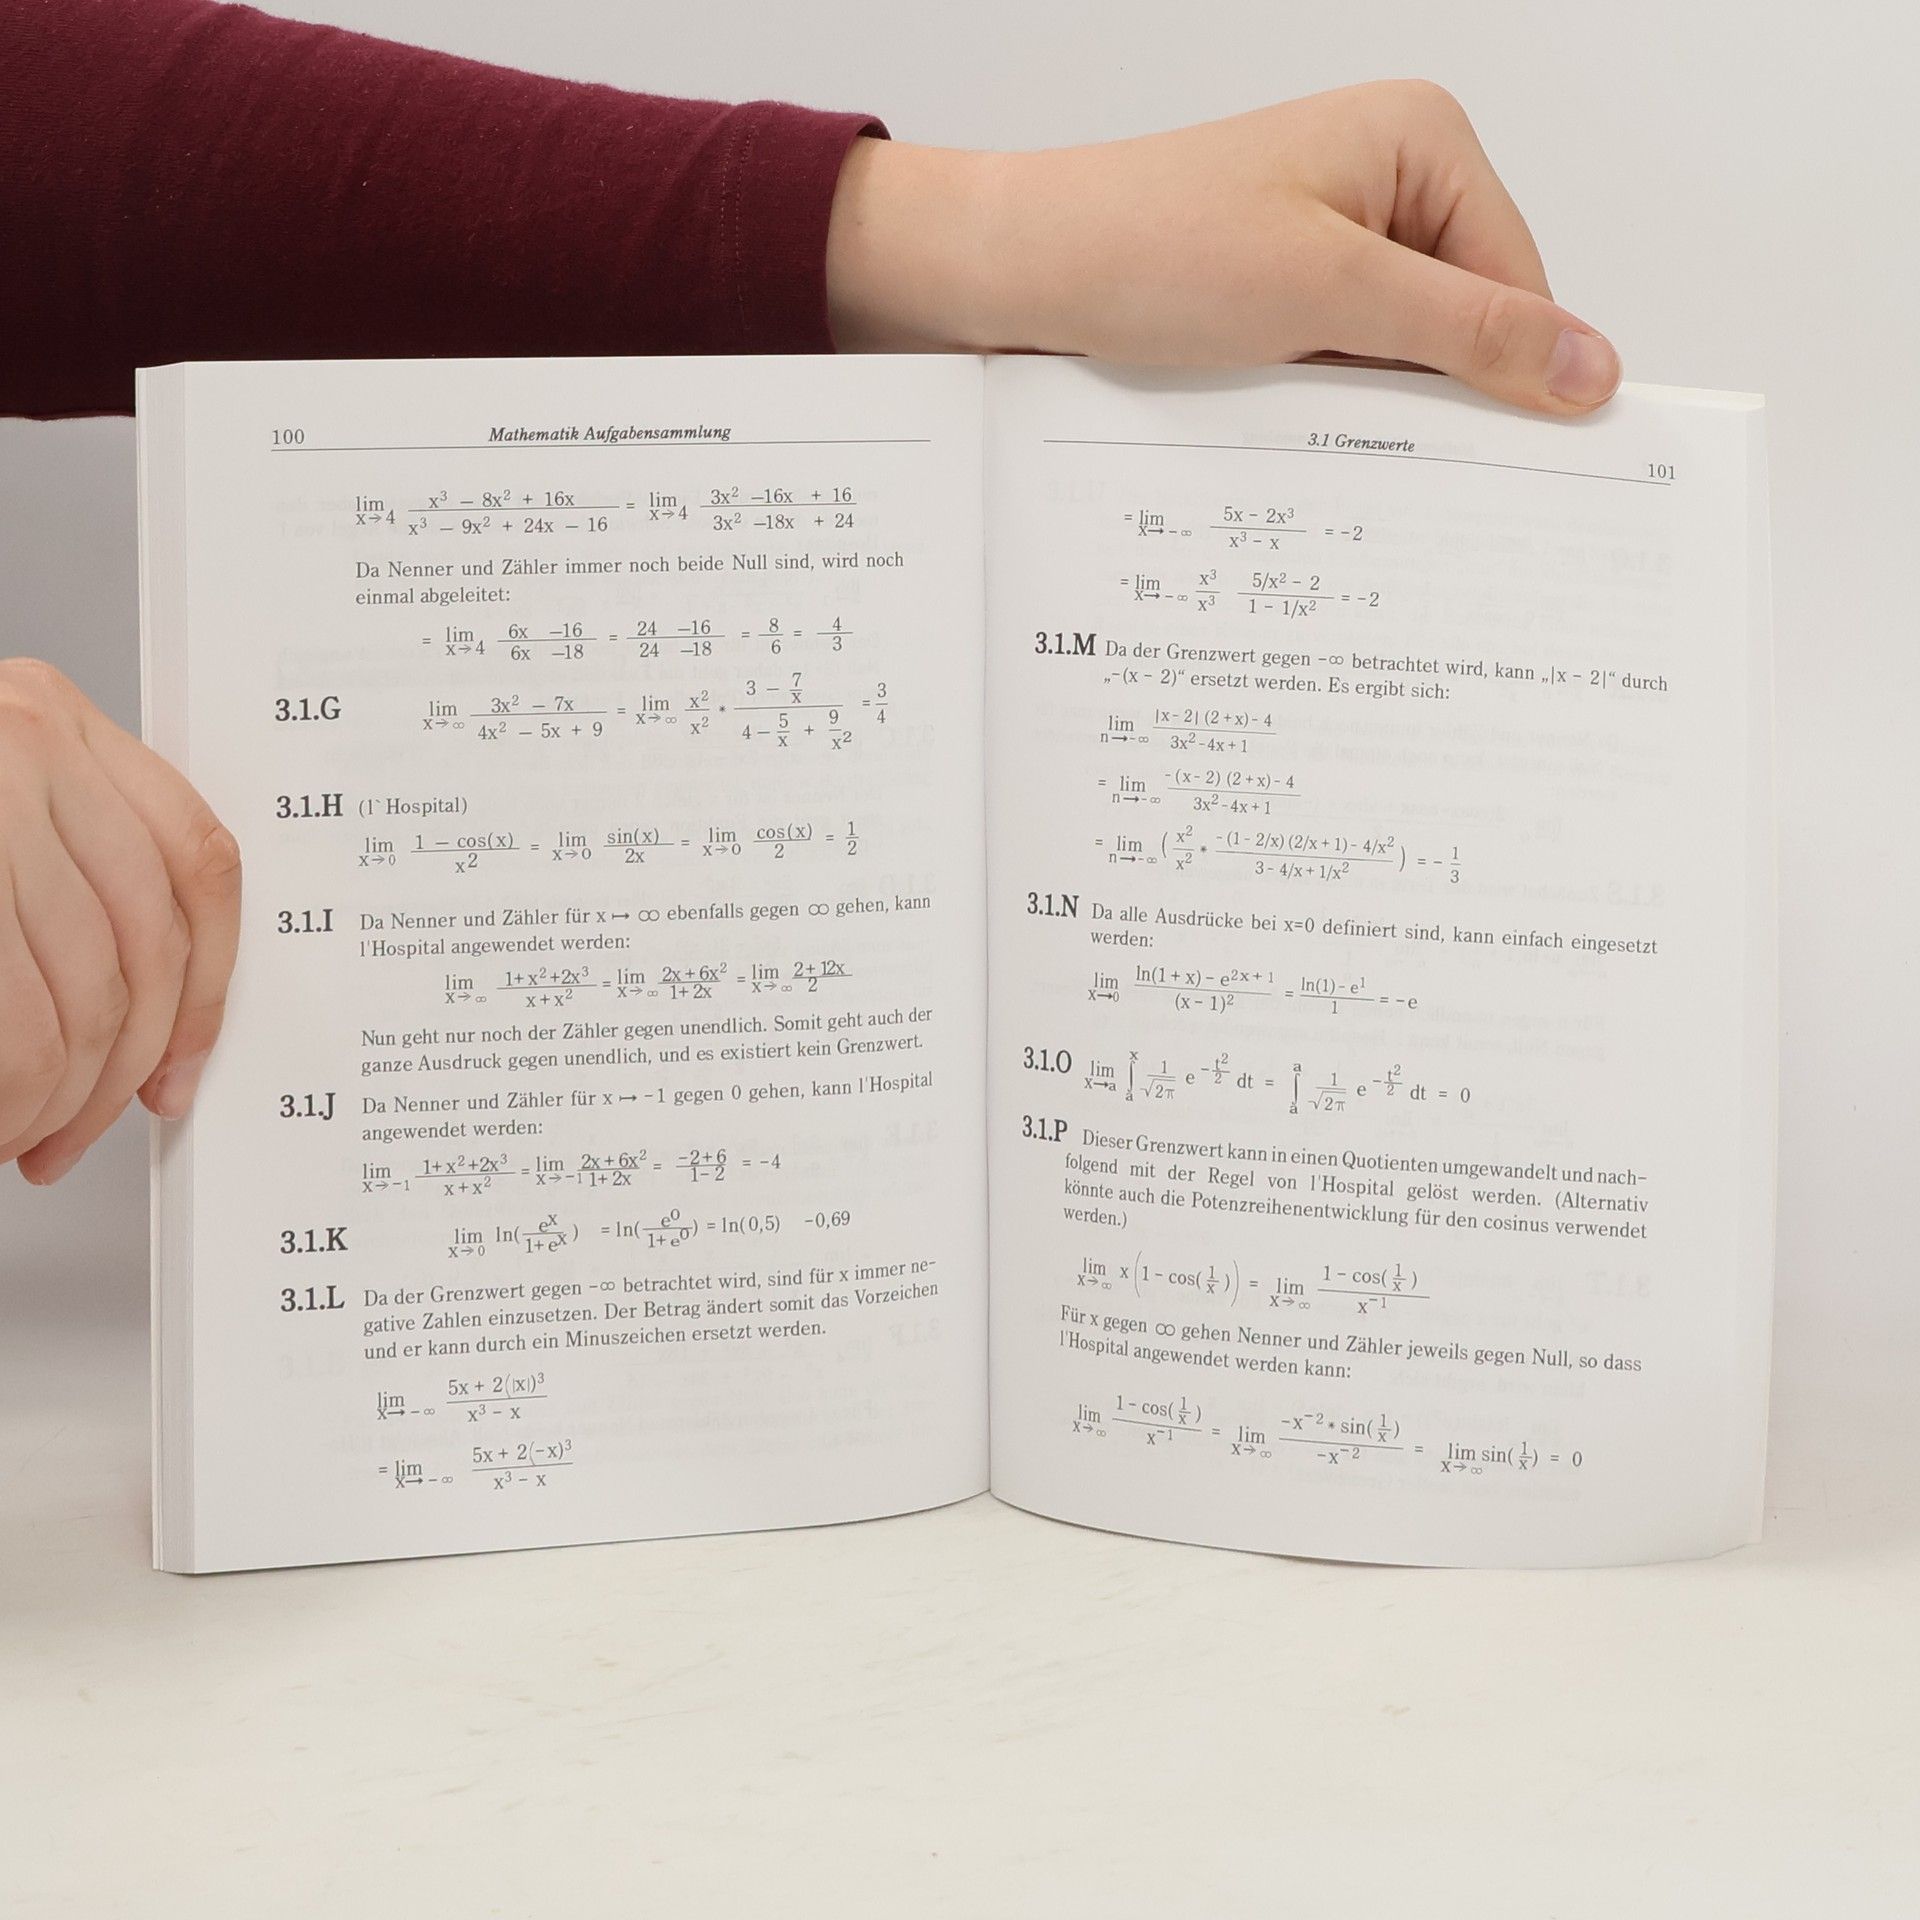 100 Mathematik Aufgabensammlung
lim x→4 (x³ − 8x² + 16x)/(x³ − 9x² + 24x − 16) = lim x→4 (3x² −16x + 16)/(3x² −18x + 24)
Da Nenner und Zähler immer noch beide Null sind, wird noch
einmal abgeleitet:
= lim x→4 (6x −16)/(6x −18) = (24 −16)/(24 −18) = 8/6 = 4/3
3.1.G lim x→∞ (3x² − 7x)/(4x² − 5x + 9) = lim x→∞ x²/x² * (3 − 7/x)/(4 − 5/x + 9/x²) = 3/4
3.1.H (l`Hospital)
lim x→0 (1 − cos(x))/x² = lim x→0 sin(x)/2x = lim x→0 cos(x)/2 = 1/2
3.1.I Da Nenner und Zähler für x ↦ ∞ ebenfalls gegen ∞ gehen, kann
l'Hospital angewendet werden:
lim x→∞ (1+x²+2x³)/(x+x²) = lim x→∞ (2x+6x²)/(1+2x) = lim x→∞ (2+12x)/2
Nun geht nur noch der Zähler gegen unendlich. Somit geht auch der
ganze Ausdruck gegen unendlich, und es existiert kein Grenzwert.
3.1.J Da Nenner und Zähler für x ↦ −1 gegen 0 gehen, kann l'Hospital
angewendet werden:
lim x→−1 (1+x²+2x³)/(x+x²) = lim x→−1 (2x+6x²)/(1+2x) = (−2+6)/(1−2) = −4
3.1.K lim x→0 ln(eˣ/(1+eˣ)) = ln(e⁰/(1+e⁰)) = ln(0,5) −0,69
3.1.L Da der Grenzwert gegen −∞ betrachtet wird, sind für x immer ne-
gative Zahlen einzusetzen. Der Betrag ändert somit das Vorzeichen
und er kann durch ein Minuszeichen ersetzt werden.
lim x→−∞ (5x + 2(|x|)³)/(x³ − x)
= lim x→−∞ (5x + 2(−x)³)/(x³ − x)
3.1 Grenzwerte 101
= lim x→−∞ (5x − 2x³)/(x³ − x) = −2
= lim x→−∞ x³/x³ (5/x² − 2)/(1 − 1/x²) = −2
3.1.M Da der Grenzwert gegen −∞ betrachtet wird, kann „|x − 2|“ durch
„−(x − 2)“ ersetzt werden. Es ergibt sich:
lim n→−∞ (|x−2| (2+x)−4)/(3x²−4x+1)
= lim n→−∞ (−(x−2) (2+x)−4)/(3x²−4x+1)
= lim n→−∞ (x²/x² * (−(1−2/x)(2/x+1)−4/x²)/(3−4/x+1/x²)) = −1/3
3.1.N Da alle Ausdrücke bei x=0 definiert sind, kann einfach eingesetzt
werden:
lim x→0 (ln(1+x)−e²ˣ⁺¹)/(x−1)² = (ln(1)−e¹)/1 = −e
3.1.O lim x→a ∫ₐˣ 1/√2π e^(−t²/2) dt = ∫ₐᵃ 1/√2π e^(−t²/2) dt = 0
3.1.P Dieser Grenzwert kann in einen Quotienten umgewandelt und nach-
folgend mit der Regel von l'Hospital gelöst werden. (Alternativ
könnte auch die Potenzreihenentwicklung für den cosinus verwendet
werden.)
lim x→∞ x(1−cos(1/x)) = lim x→∞ (1−cos(1/x))/x⁻¹
Für x gegen ∞ gehen Nenner und Zähler jeweils gegen Null, so dass
l'Hospital angewendet werden kann:
lim x→∞ (1−cos(1/x))/x⁻¹ = lim x→∞ (−x⁻² * sin(1/x))/(−x⁻²) = lim x→∞ sin(1/x) = 0